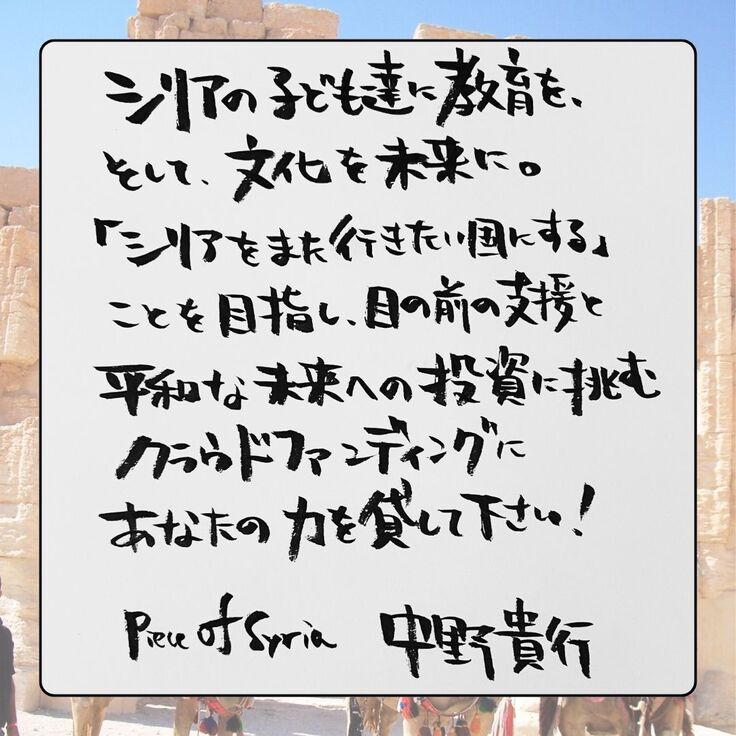 シリアの子ども達に教育を、
そして、文化を未来に。
「シリアをまた行きたい国にする」
ことを目指し、目の前の支援と
平和な未来への投資に挑む
クラウドファンディングに
あなたの力を貸して下さい!
Piece of Syria 中野貴行